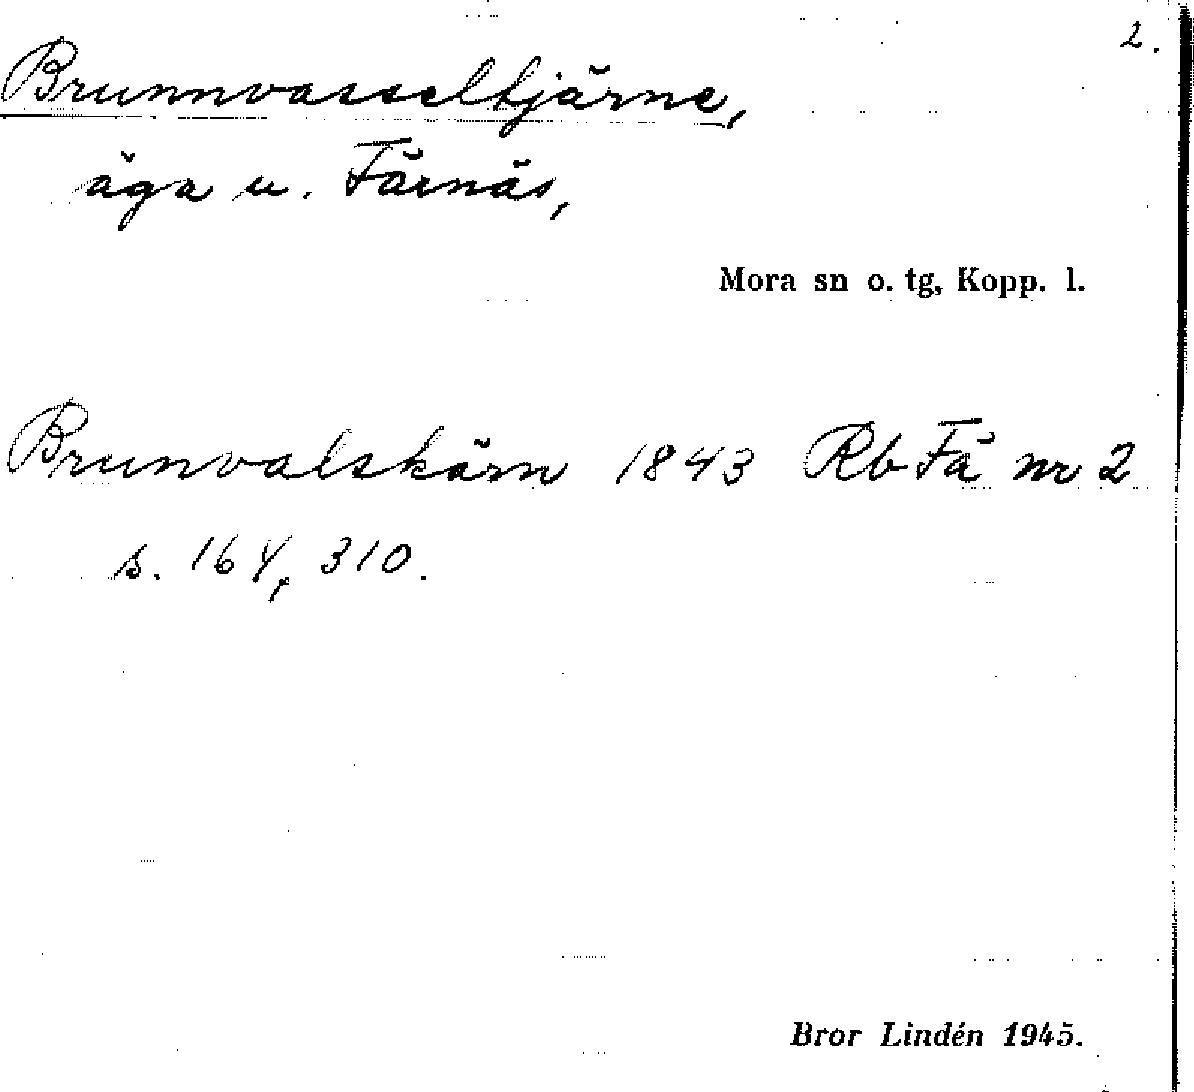 2.
Brunnvasseltjärne,
äga u. Färnäs,
Mora sn o. tg, Kopp. l.
Brunvalskärn 1843 Rb Fä nr 2
s. 164, 310.
Bror Lindén 1945.